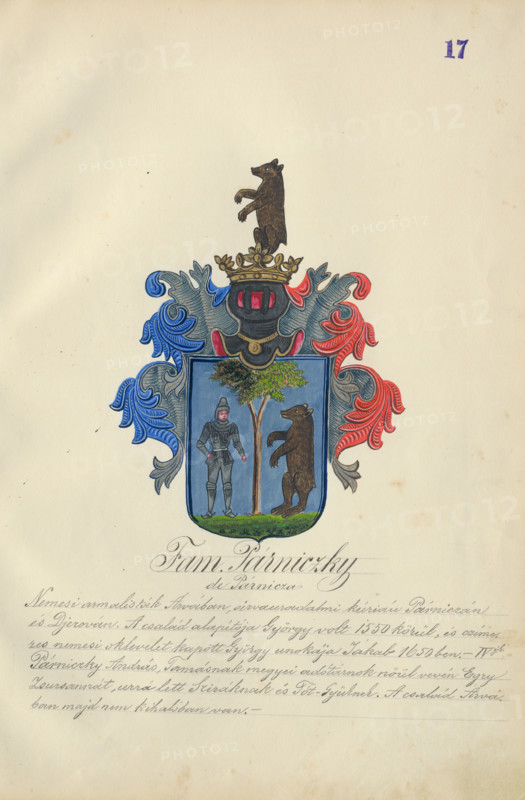 17
Fam. Párniczky
de Párnicza
Nemesi armalisták Árvában, árvaurodalmi kúriái Párniczán
és Djerován. A család alapítója György volt 1550 körül, és czíme-
res nemesi oklevelet kapott György unokája Jakab 1650ben. —
Párniczky András, Tamásnak megyei adótárnok nőül vevén Egry
Zsuzsannát, urra lett Sziráknak és Tót-Györknek. A család Árvá-
ban majd nem kihalóban van. —
PHOTO12